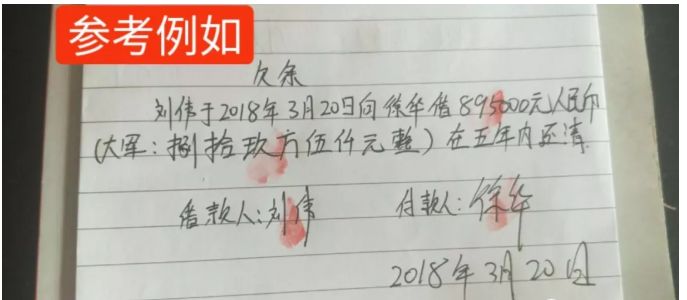 参考例如
欠条
刘伟于2018年3月20日向徐华借895000元人民币
(大军：捌拾玖万伍仟元整)在五年内还清
借款人:刘伟 付款人:徐华
2018年3月20日